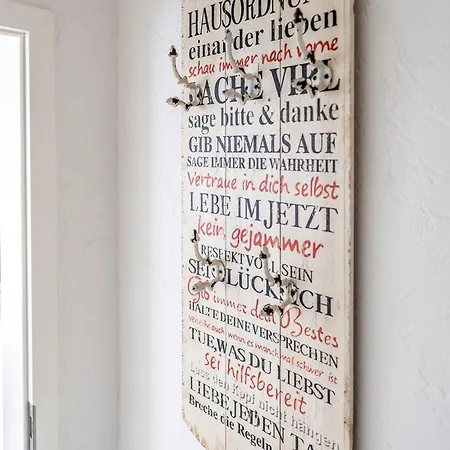 HAUSORDNUNG
einander lieben
schau immer nach vorne
LACHE VIEL
sage bitte & danke
GIB NIEMALS AUF
SAGE IMMER DIE WAHRHEIT
Vertraue in dich selbst
LEBE IM JETZT
kein gejammer
RESPEKTVOLL SEIN
SEI GLÜCKLICH
Gib immer dein Bestes
HALTE DEINE VERSPRECHEN
verzeihe auch wenn es manchmal schwer ist
TUE, WAS DU LIEBST
sei hilfsbereit
Lass den Kopf nicht hängen
LIEBE JEDEN TAG
Breche die Regeln